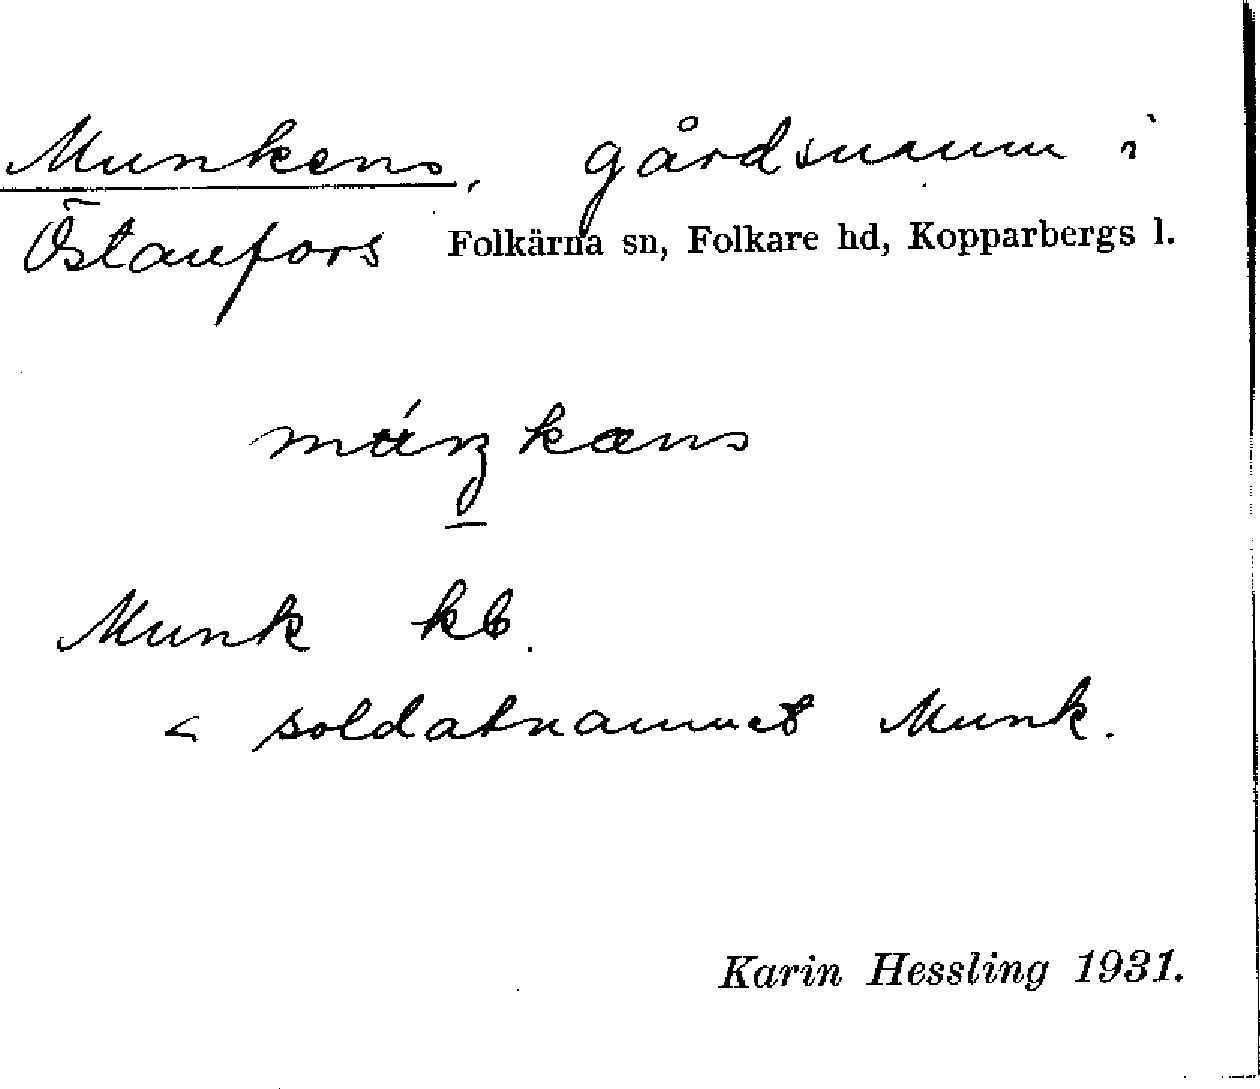 Munkens, gårdsnamn i
Östanfors Folkärna sn, Folkare hd, Kopparbergs l.
Munk kb.
< soldatnamnet Munk.
Karin Hessling 1931.